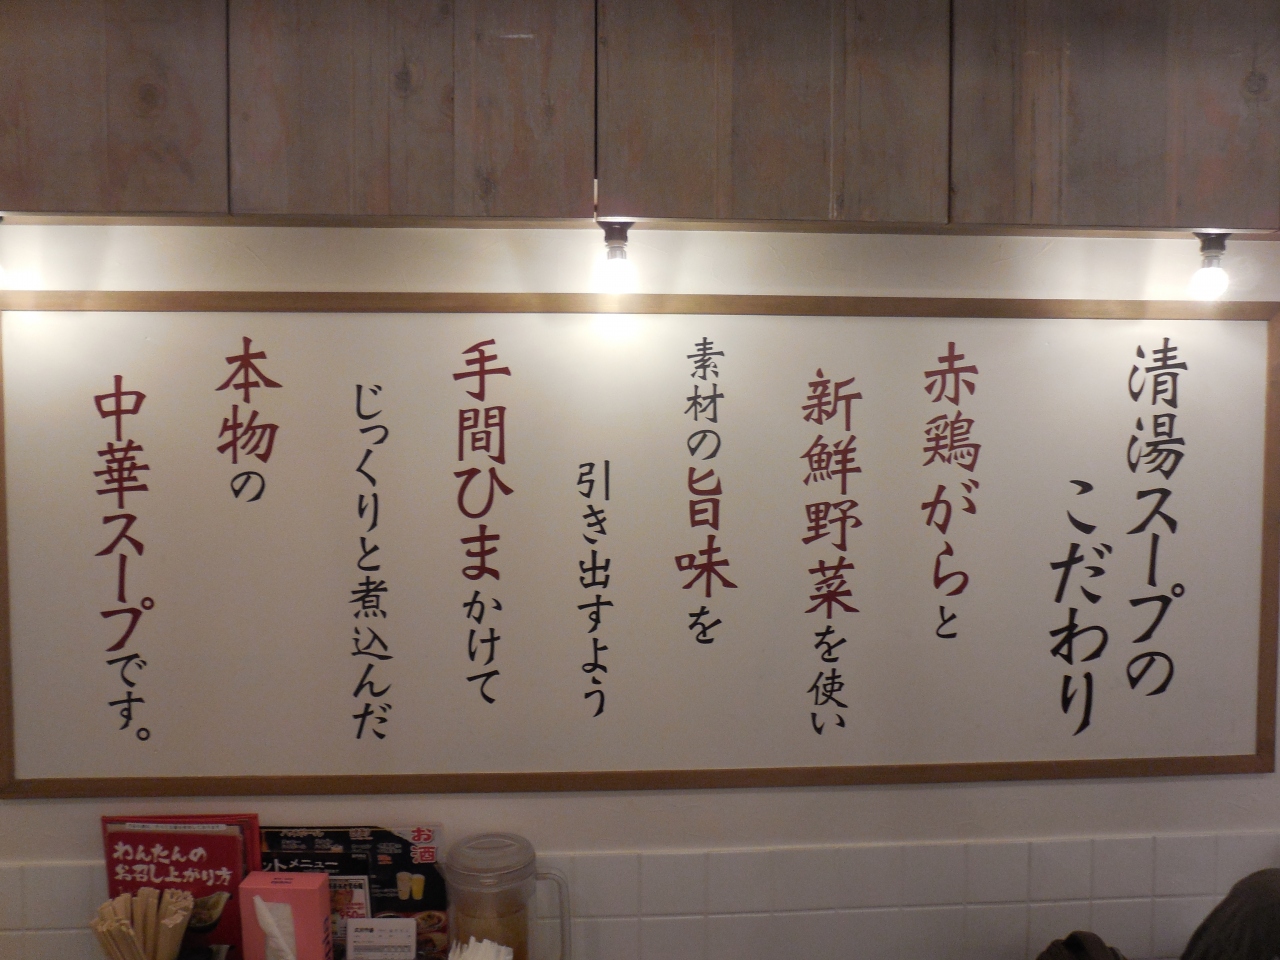 清湯スープの
こだわり
赤鶏がらと
新鮮野菜を使い
素材の旨味を
引き出すよう
手間ひまかけて
じっくりと煮込んだ
本物の
中華スープです。
わんたんの
お召し上がり方
ットメニュー
お酒